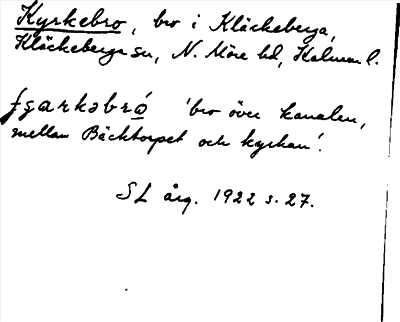 Kyrkebro, bro i Kläckeberga,
Kläckeberga sn, N. Möre hd, Kalmar l.
çarkəbró 'bro över kanalen,
mellan Bäcktorpet och kyrkan'.
SL årg. 1922 s. 27.